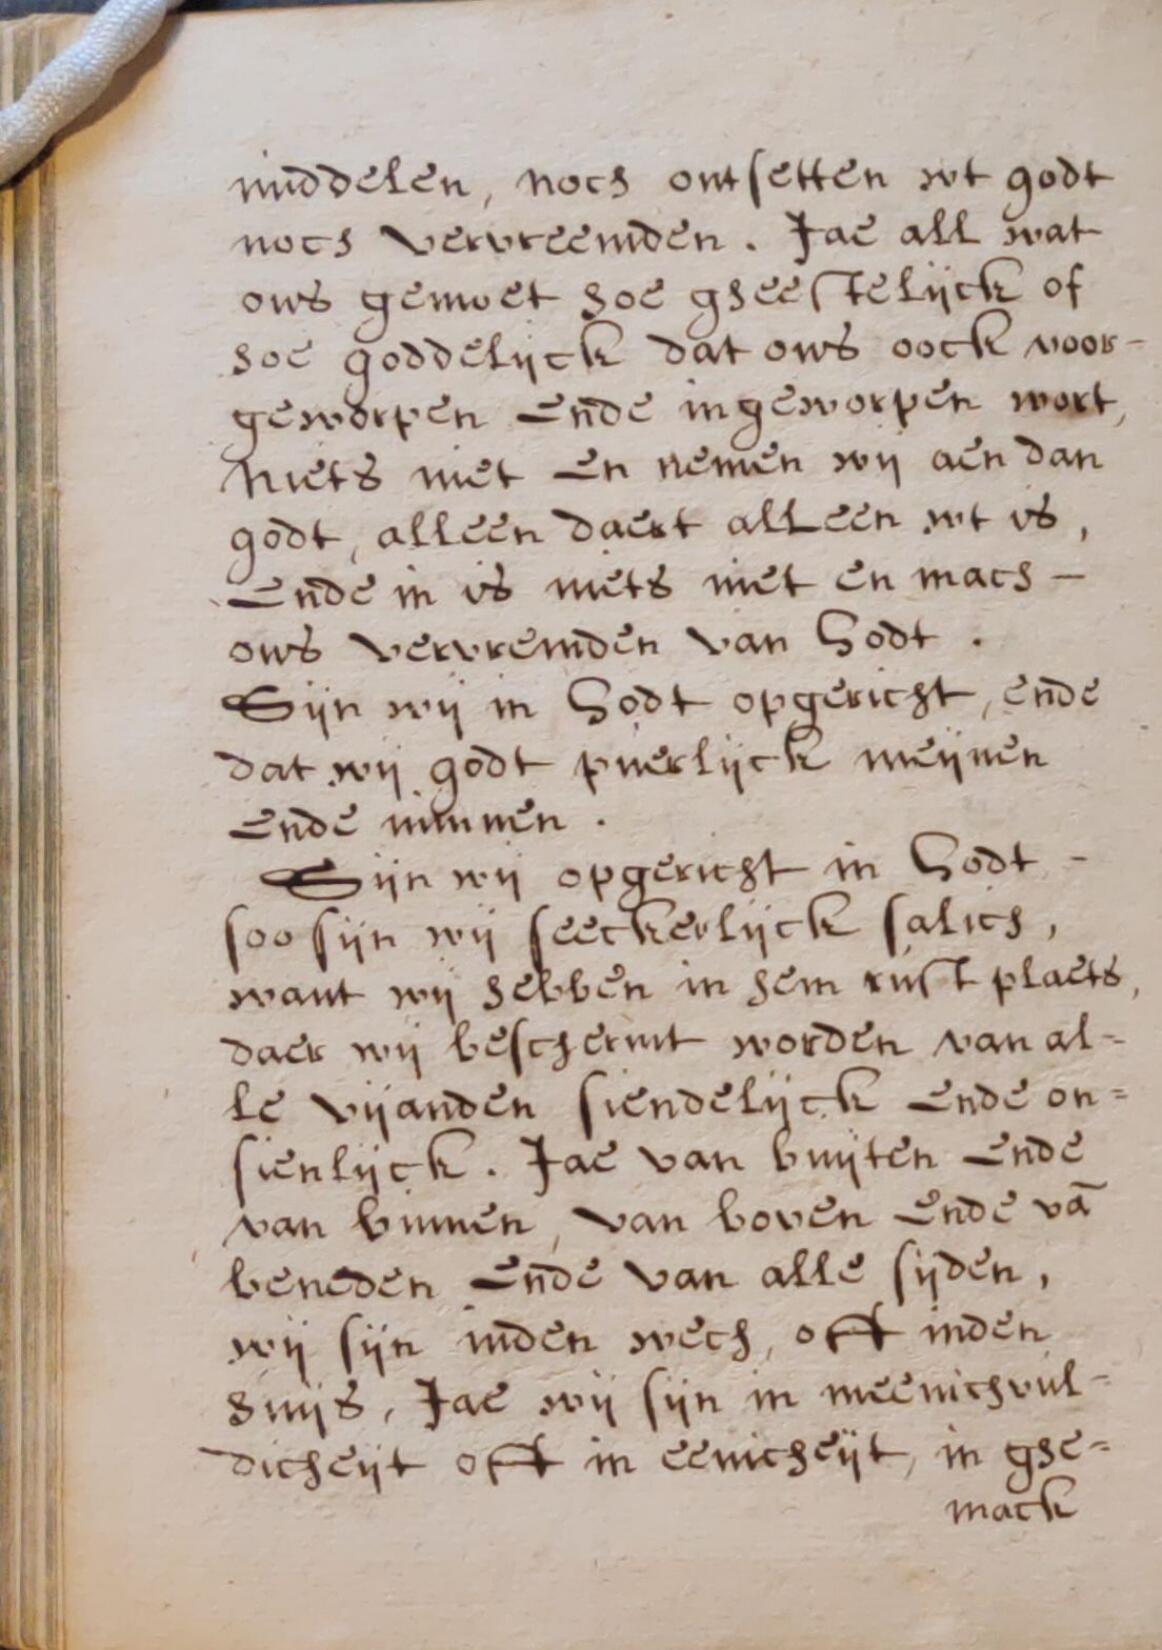 middelen, noch ontsetten wt godt
noch vervreemden. Jae all wat
ons gemoet hoe gheestelijck of
hoe goddelijck dat ons oock voor-
geworpen ende ingeworpen wort,
niets niet en nemen wij aen dan
godt, alleen daert alleen wt is,
ende in is niets niet en mach -
ons vervremden van Godt.
Sijn wij in Godt opgericht, ende
dat wij godt puerlijck meijnen
ende minnen.
Sijn wij opgericht in Godt -
soo sijn wij seeckerlijck salich,
want wij hebben in hem rust plaets,
daer wij beschermt worden van al=
le vijanden siendelijck ende on=
sienlijck. Jae van buijten ende
van binnen, van boven ende vā
beneden ende van alle sijden,
wij sijn inden wech, oft inden
huijs, Jae wij sijn in meenichvul=
dicheijt oft in eenicheijt, in ghe=
mack